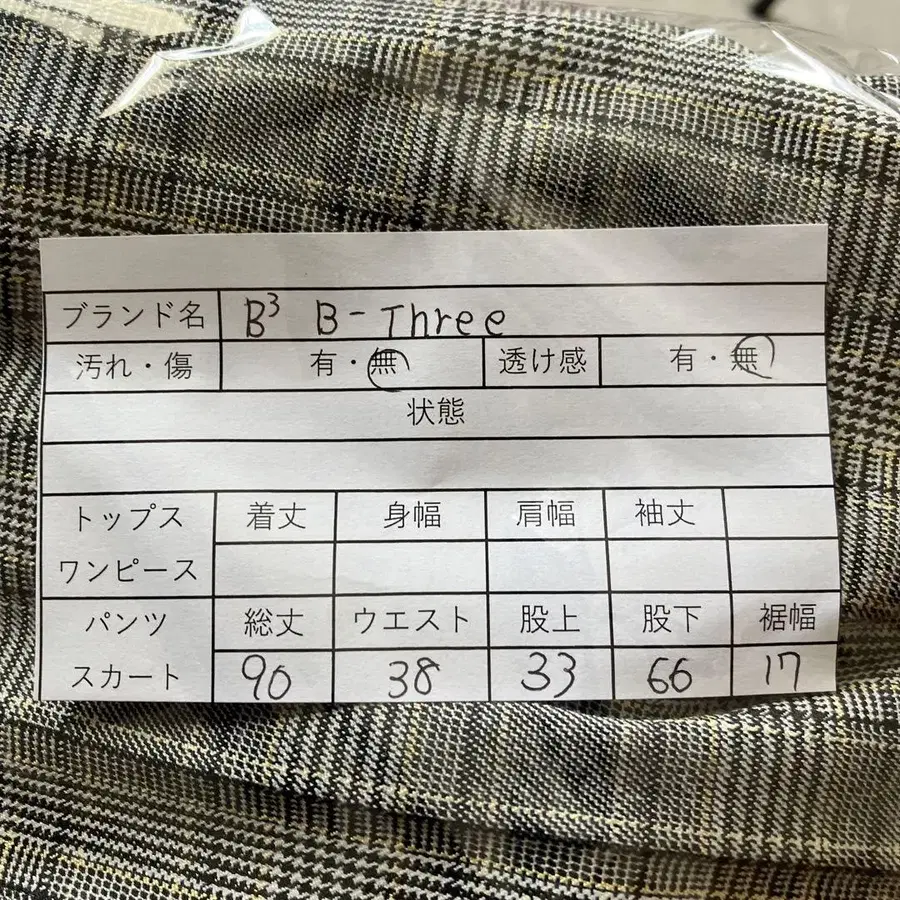 ブランド名 B³ B-Three
汚れ・傷 有・無 透け感 有・無
状態
トップス 着丈 身幅 肩幅 袖丈
ワンピース
パンツ 総丈 ウエスト 股上 股下 裾幅
スカート 90 38 33 66 17